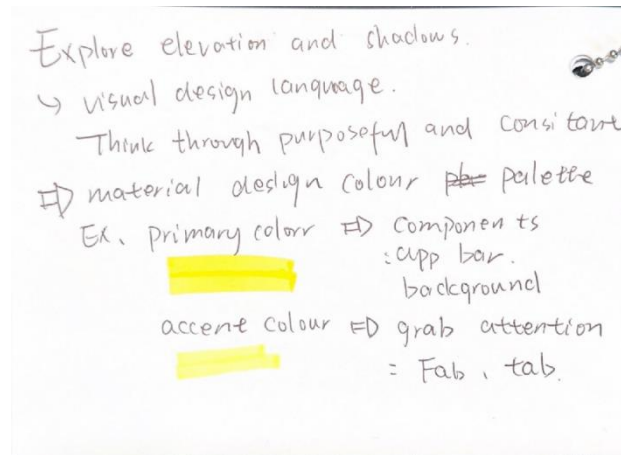 Explore elevation and shadows.
↳ visual design language.
Think through purposeful and consitant
⇒ material design colour palette
Ex. primary colorr ⇒ Components
: app bar.
background
accent colour ⇒ grab attention
= Fab, tab.